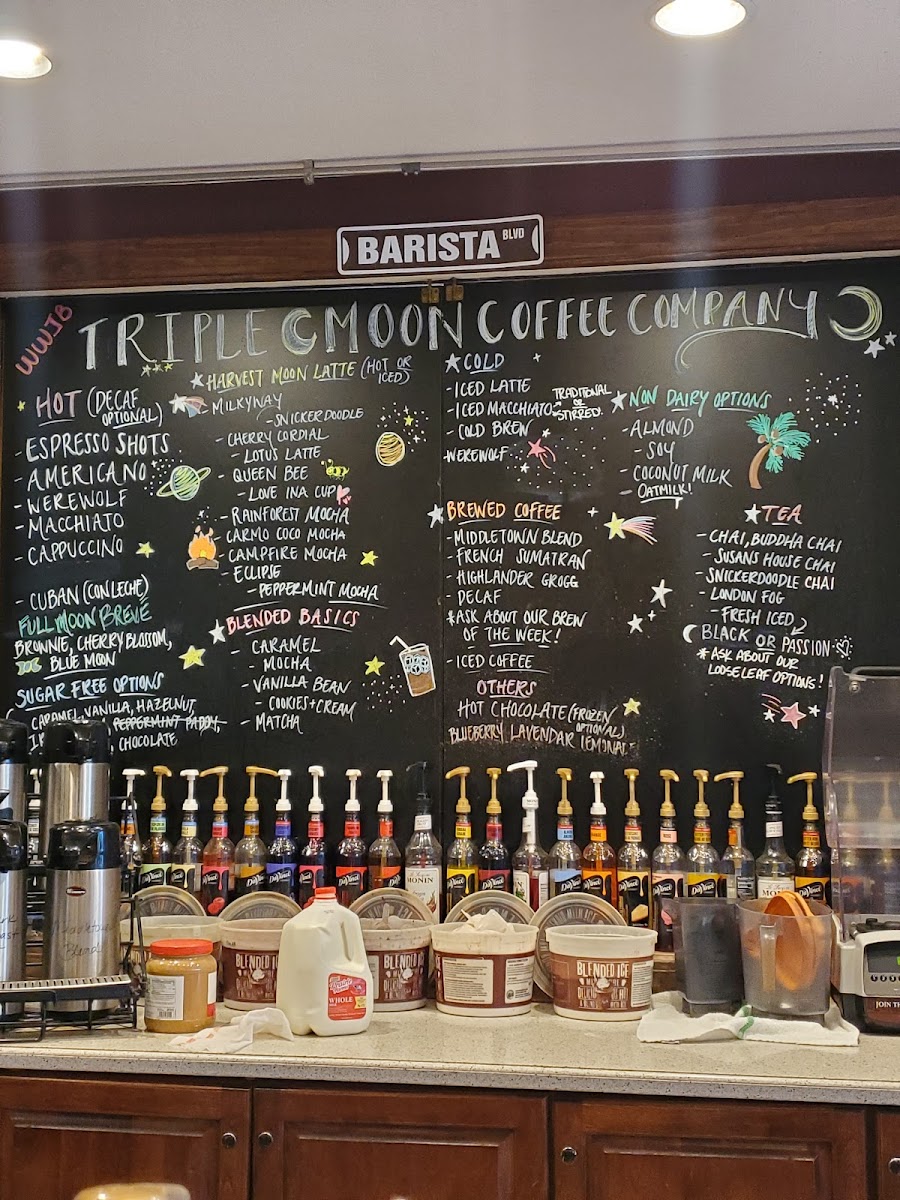 BARISTA BLVD
WWJB
TRIPLE MOON COFFEE COMPANY
HOT (DECAF
OPTIONAL)
-ESPRESSO SHOTS
-AMERICANO
-WEREWOLF
-MACCHIATO
-CAPPUCCINO
-CUBAN (CON LECHE)
FULL MOON BREVE
BROWNIE, CHERRY BLOSSOM,
BLUE MOON
SUGAR FREE OPTIONS
CARAMEL, VANILLA, HAZELNUT,
PEPPERMINT PADDY,
CHOCOLATE
HARVEST MOON LATTE (HOT OR
ICED)
-MILKYWAY
-SNICKERDOODLE
-CHERRY CORDIAL
-LOTUS LATTE
-QUEEN BEE
-LOVE IN A CUP
-RAINFOREST MOCHA
-CARMO COCO MOCHA
-CAMPFIRE MOCHA
-ECLIPSE
-PEPPERMINT MOCHA
BLENDED BASICS
-CARAMEL
-MOCHA
-VANILLA BEAN
-COOKIES+CREAM
-MATCHA
COLD
-ICED LATTE
-ICED MACCHIATO
TRADITIONAL
OR
STIRRED!
-COLD BREW
-WEREWOLF
BREWED COFFEE
-MIDDLETOWN BLEND
-FRENCH SUMATRAN
-HIGHLANDER GROGG
-DECAF
*ASK ABOUT OUR BREW
OF THE WEEK!
-ICED COFFEE
OTHERS
HOT CHOCOLATE (FROZEN
OPTIONAL)
BLUEBERRY LAVENDAR LEMONADE
NON DAIRY OPTIONS
-ALMOND
-SOY
-COCONUT MILK
-OATMILK!
TEA
-CHAI, BUDDHA CHAI
-SUSANS HOUSE CHAI
-SNICKERDOODLE CHAI
-LONDON FOG
-FRESH ICED
BLACK OR PASSION
*ASK ABOUT OUR
LOOSE LEAF OPTIONS!
DaVinci
DaVinci
DaVinci
DaVinci
DaVinci
MONIN
DaVinci
DaVinci
DaVinci
DaVinci
DaVinci
DaVinci
MONIN
Middletown
Blend
BLENDED ICE
WHOLE
BLENDED ICE
BLENDED ICE
JOIN TH